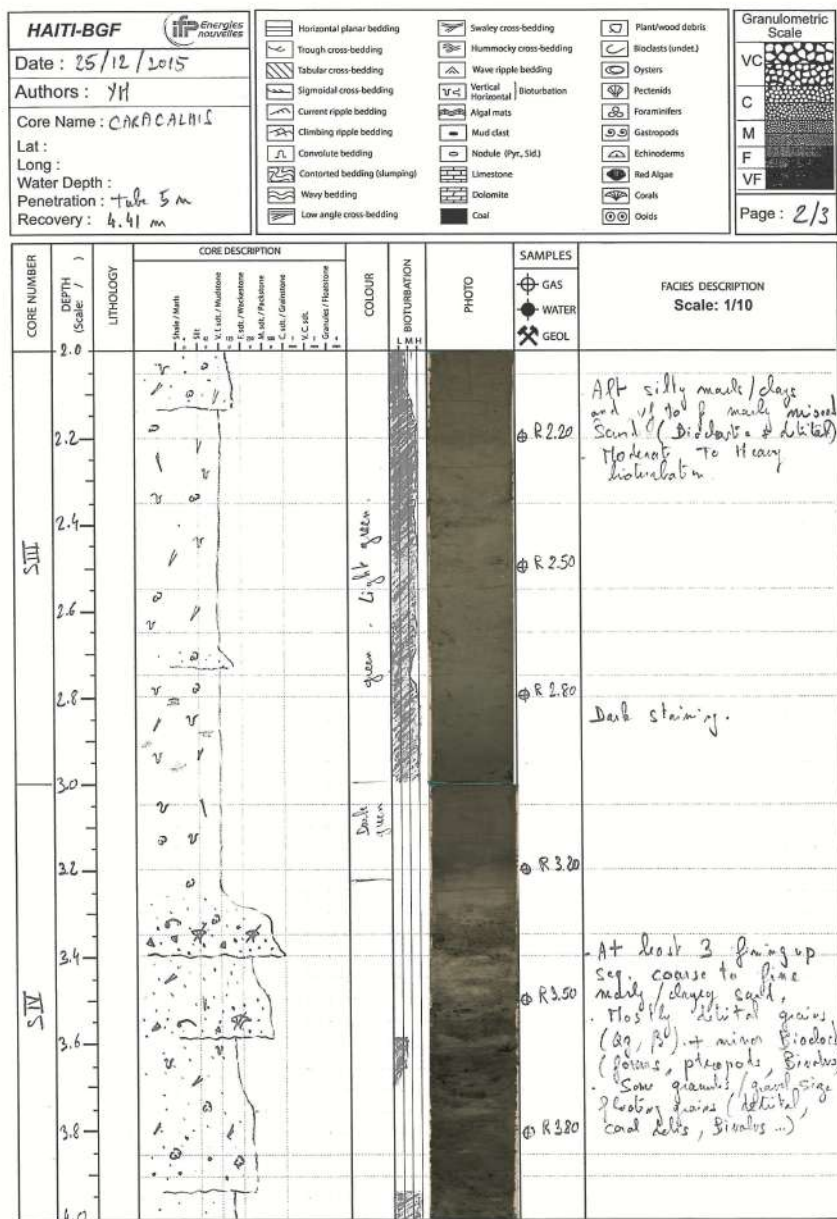 HAITI-BGF
ifp Energies nouvelles
Date : 25/12/2015
Authors : YH
Core Name :
Lat :
Long :
Water Depth :
Penetration : tube 5 m
Recovery : 4.41 m
Horizontal planar bedding
Trough cross-bedding
Tabular cross-bedding
Sigmoidal cross-bedding
Current ripple bedding
Climbing ripple bedding
Convolute bedding
Contorted bedding (slumping)
Wavy bedding
Low angle cross-bedding
Swaley cross-bedding
Hummocky cross-bedding
Wave ripple bedding
Vertical
Horizontal
Bioturbation
Algal mats
Mud clast
Nodule (Pyr., Sid.)
Limestone
Dolomite
Coal
Plant/wood debris
Bioclasts (undet.)
Oysters
Pectenids
Foraminifers
Gastropods
Echinoderms
Red Algae
Corals
Ooids
Granulometric
Scale
VC
C
M
F
VF
Page : 2/3
CORE NUMBER
DEPTH
(Scale: / )
LITHOLOGY
CORE DESCRIPTION
Shale / Marls
Silt
V. f. sdt. / Mudstone
F. sdt. / Wackestone
M. sdt. / Packstone
C. sdt. / Grainstone
V. C. sdt.
Granules / Floatstone
COLOUR
BIOTURBATION
L M H
PHOTO
SAMPLES
GAS
WATER
GEOL
FACIES DESCRIPTION
Scale: 1/10
2.0
2.2
2.4
2.6
2.8
3.0
3.2
3.4
3.6
3.8
4.0
SIII
SIV
green . Light green .
Dark green
R 2.20
R 2.50
R 2.80
R 3.20
R 3.50
R 3.80
Alt silty marls/clays
and vf to f marly mixed
Sand (Bioclastic & detrital)
- Moderate To Heavy
bioturbation.
Dark staining.
- At least 3 fining up
seq. coarse to fine
marly/clayey sand,
. Mostly detrital grains,
(Qz, β) + minor Bioclas
(forams, pteropods, Bivalves
. Some granules/gravel size
floating grains (detrital,
coral debris, Bivalves ...)